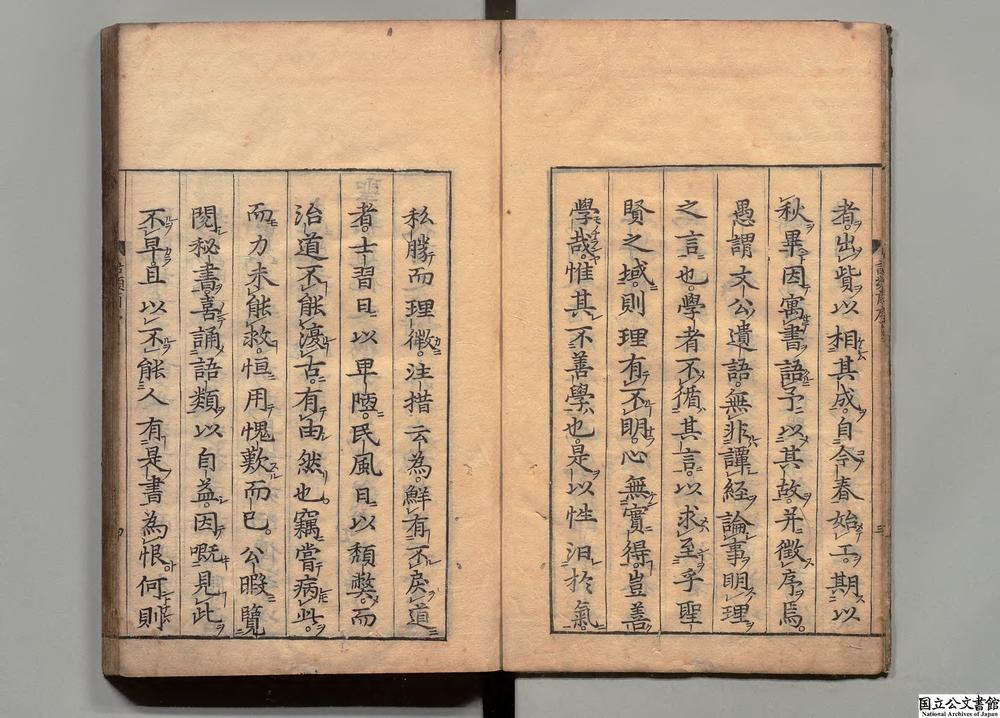 者出貲以相其成自今春始工期以
秋畢因寓書語予以其故并徵序焉
愚謂文公遺語無非譚經論事明理
之言也學者不循其言以求至乎聖
賢之域則理有不明心無實得豈善
學哉惟其不善學也是以性汩於氣
私勝而理微注措云為鮮有不戾道
者士習日以卑陋民風日以頹獘而
治道不能復古有由然也竊嘗病此
而力未能救恒用愧歎而已公暇覽
閱秘書喜誦語類以自益因嘅見此
不早且以不能人有是書為恨何則
国立公文書館
National Archives of Japan